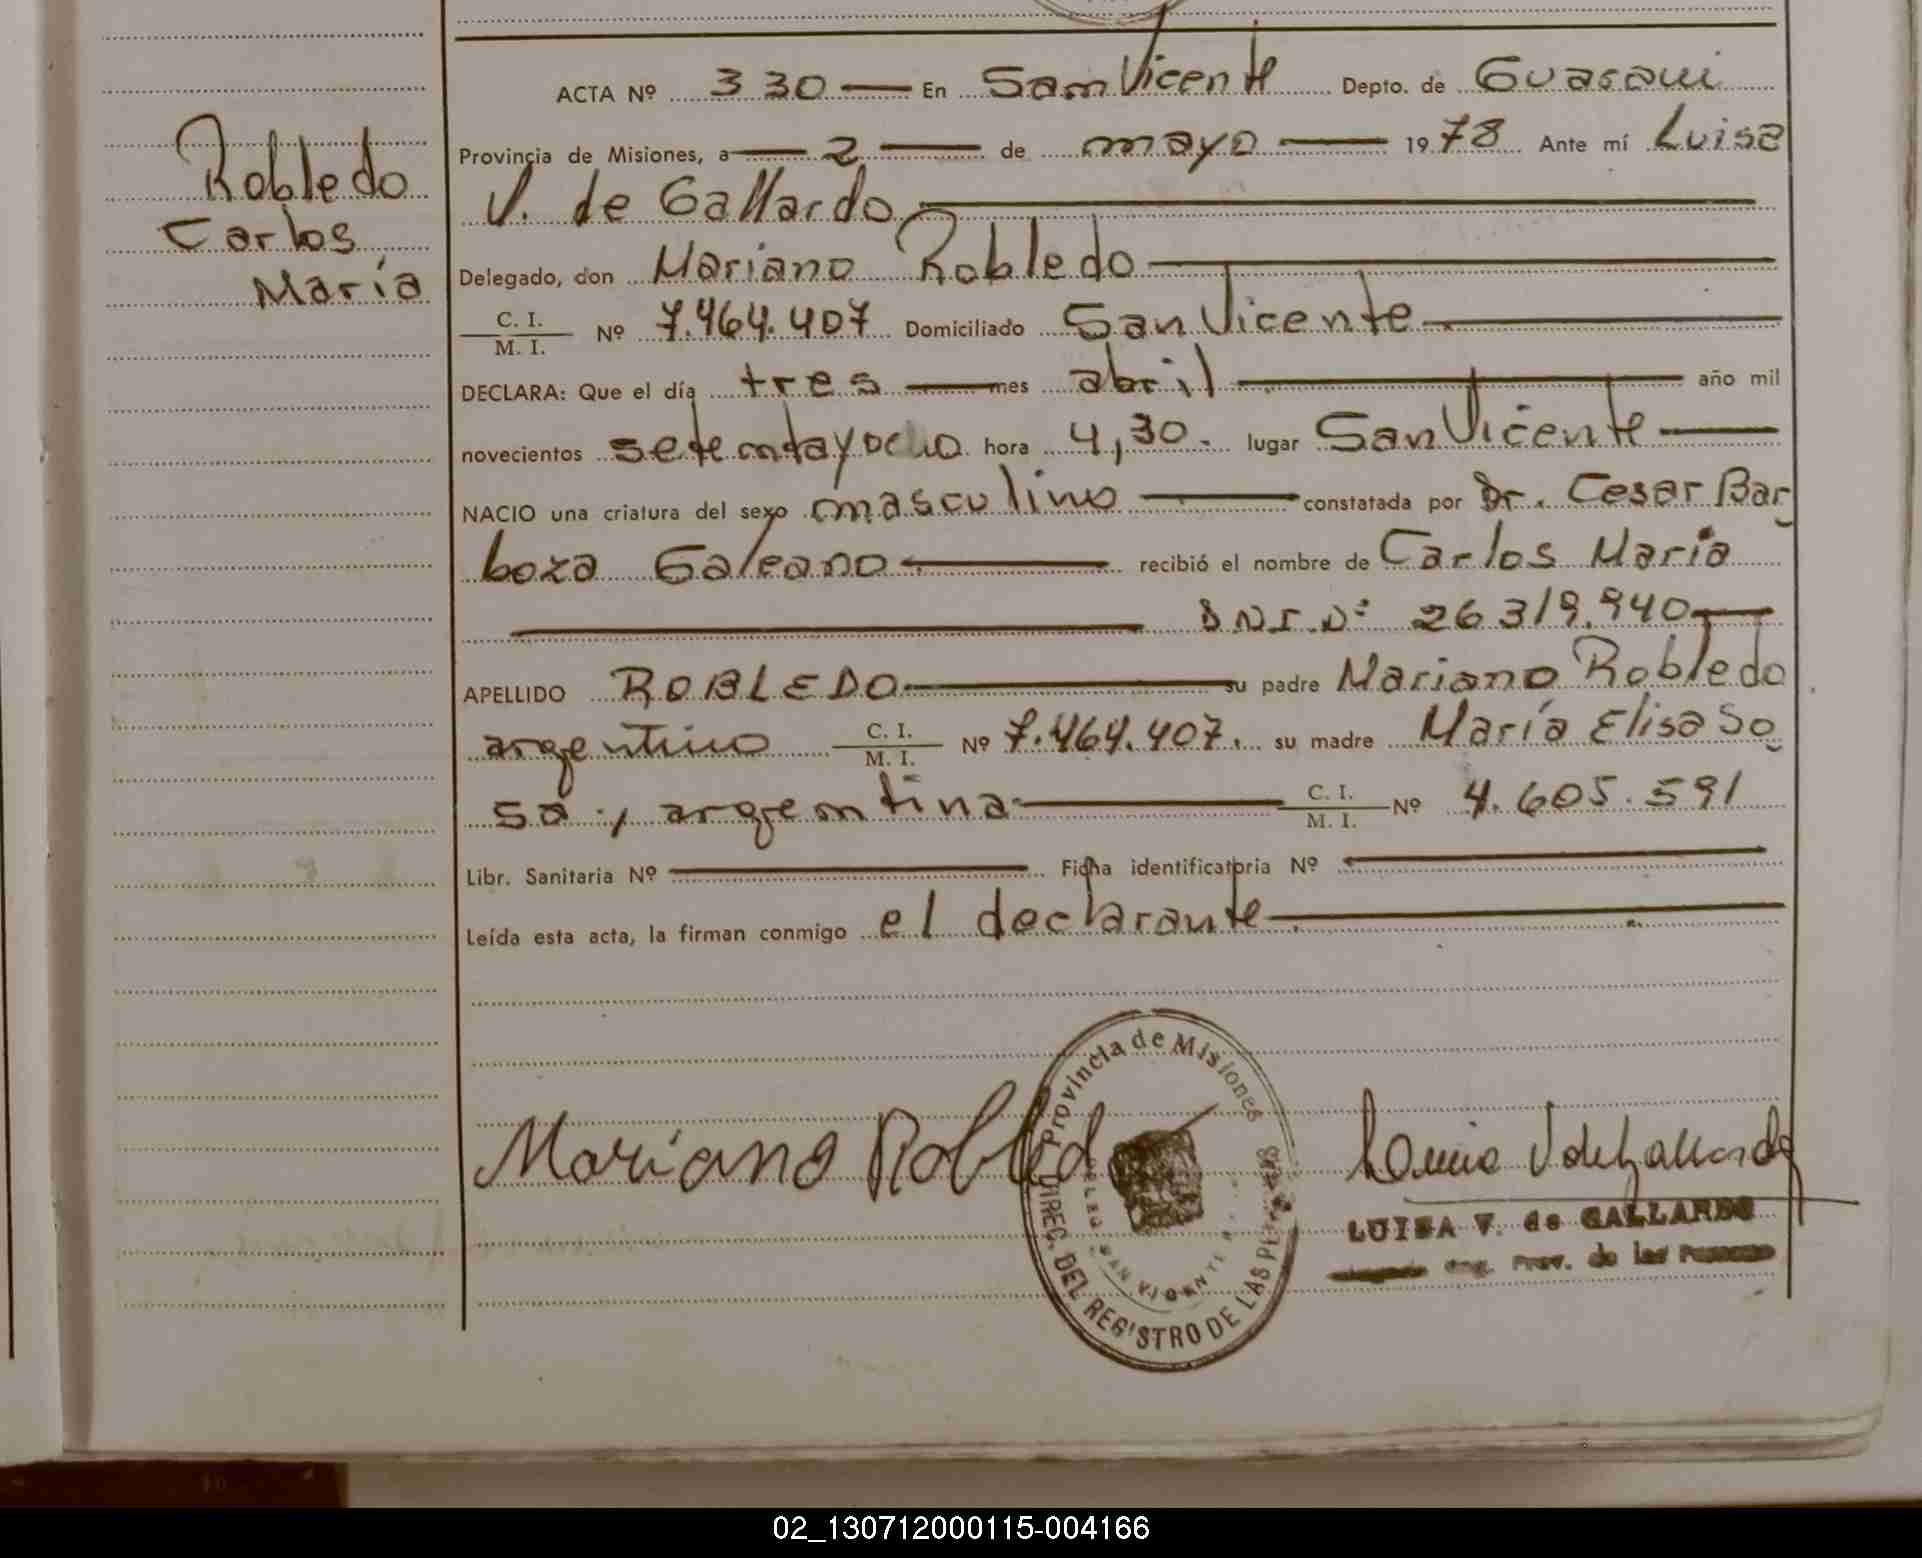 ACTA Nº 330 — En San Vicente Depto. de Guaraní
Provincia de Misiones, a 2 de mayo 1978 Ante mí Luisa
V. de Gallardo
Delegado, don Mariano Robledo
C. I. / M. I. Nº 7.464.407 Domiciliado San Vicente
DECLARA: Que el día tres mes abril año mil
novecientos setentayocho hora 4,30. lugar San Vicente
NACIO una criatura del sexo masculino constatada por Dr. Cesar Bar
boza Galeano recibió el nombre de Carlos María
D.N.I. Nº 26.319.940
APELLIDO ROBLEDO su padre Mariano Robledo
argentino C. I. / M. I. Nº 7.464.407. su madre María Elisa So
sa, argentina C. I. / M. I. Nº 4.605.591
Libr. Sanitaria Nº Ficha identificatoria Nº
Leída esta acta, la firman conmigo el declarante
Robledo
Carlos
María
Mariano Robledo
Provincia de Misiones
DIREC. DEL REGISTRO DE LAS PERSONAS
DELEG. SAN VICENTE
Luisa V de Gallardo
LUISA V. de GALLARDO
Prov. de las Personas
02_130712000115-004166